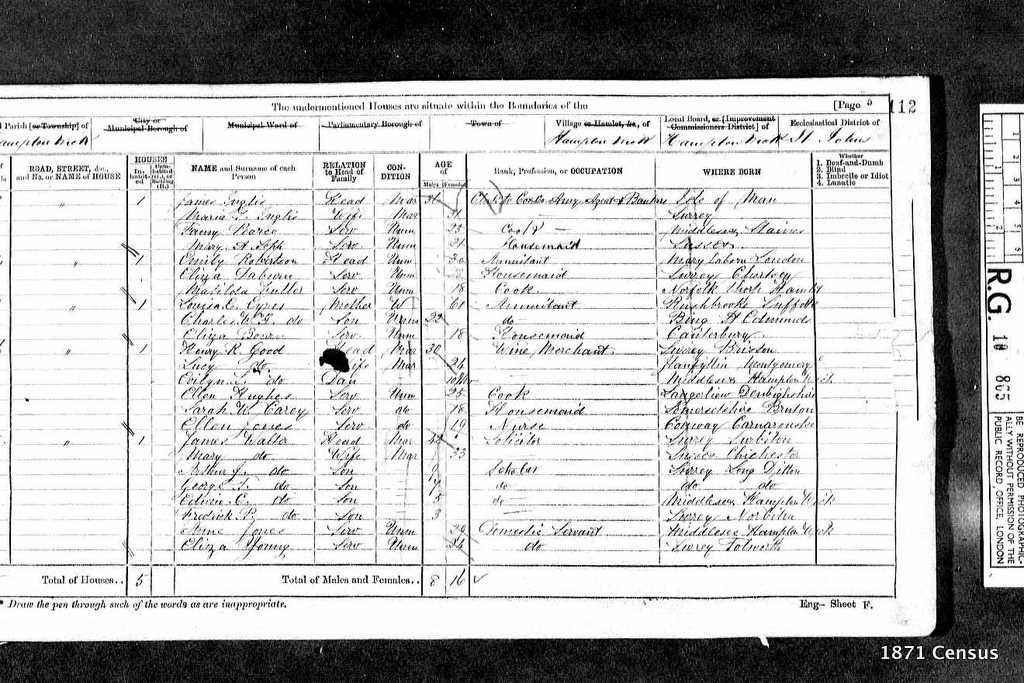 The undermentioned Houses are situate within the Boundaries of the [Page 5 112
Parish [or Township] of City or Municipal Borough of Municipal Ward of Parliamentary Borough of Town of Village or Hamlet, &c., of Local Board, or [Improvement Commissioners District] of Ecclesiastical District of
Hampton Wick Hampton Wick St. Johns
ROAD, STREET, &c., and No. or NAME of HOUSE HOUSES Inhabited NAME and Surname of each Person RELATION to Head of Family CONDITION AGE of Males Females Rank, Profession, or OCCUPATION WHERE BORN Whether 1. Deaf-and-Dumb 2. Blind 3. Imbecile or Idiot 4. Lunatic
" 1 James Inglis Head Mar 31 Army Agent & Bankers Isle of Man
Maria Inglis Wife Mar 31 Surrey
Serv Unm Cook Middlesex Staines
Mary A Serv Unm 21 Housemaid Sussex
" 1 Emily Robertson Head Unm Annuitant London
Eliza Serv Unm Housemaid Surrey Chertsey
Matilda Serv Unm 18 Cook Norfolk
" 1 Louisa C. Eyres Mother W 61 Annuitant Suffolk
Charles do Son Unm do Bury St Edmunds
Eliza Serv Unm 18 Housemaid Canterbury
" 1 Henry R. Good Head Mar 30 Wine Merchant Surrey Brixton
Lucy do Wife Mar Montgomery
do Dau Middlesex Hampton Wick
Ellen Hughes Serv Unm 25 Cook Denbighshire
Sarah Carey Serv do 18 Housemaid Somersetshire Bruton
Ellen Jones Serv do 19 Nurse Conway
" 1 James Walter Head Mar Solicitor Surrey Surbiton
Mary do Wife Mar 33 Sussex Chichester
Arthur do Son 9 Scholar Surrey Long Ditton
George do Son 7 do do do
Edwin C. do Son 5 do Middlesex Hampton Wick
Fredick P. do Son 3 Surrey Norbiton
Jones Serv Unm Domestic Servant Middlesex Hampton Wick
Eliza Young Serv Unm do Surrey Tolworth
Total of Houses.. 5 Total of Males and Females.. 8 16
* Draw the pen through such of the words as are inappropriate. Eng- Sheet F.
R.G. 10 865
BE REPRODUCED PHOTOGRAPHIC-
ALLY WITHOUT PERMISSION OF THE
PUBLIC RECORD OFFICE, LONDON
1871 Census